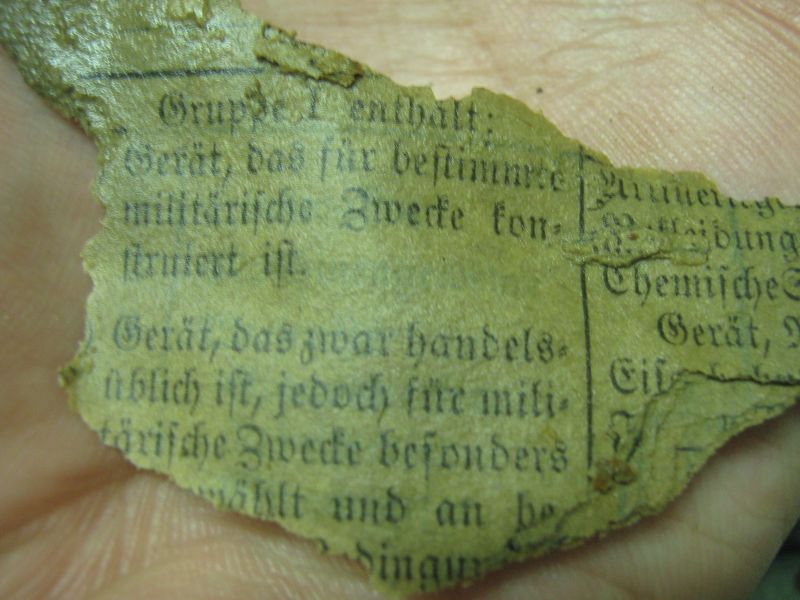 Gruppe I enthält:
Gerät, das für bestimmte
militärische Zwecke kon-
struiert ist.
Gerät, das zwar handels-
üblich ist, jedoch für mili-
tärische Zwecke besonders
und an be
Chemische
Gerät,